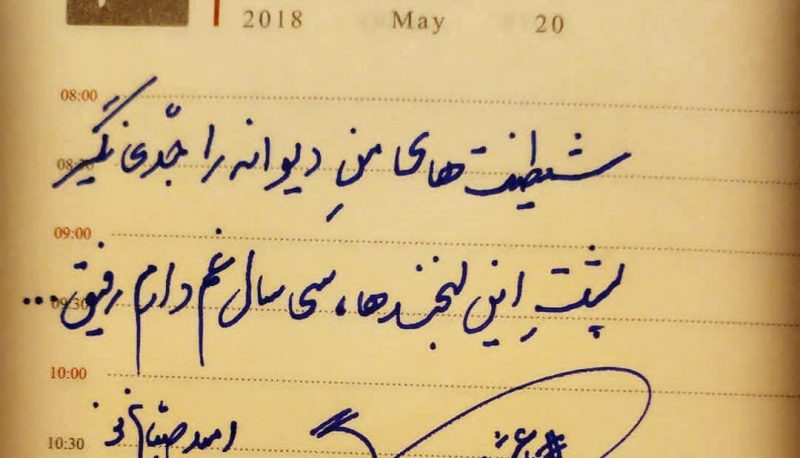 2018 May 20
08:00
شیطنت های منِ دیوانه را جدّی نگیر
08:30
09:00
پشتِ این لبخندها، سی سال غم دارم رفیق...
09:30
10:00
10:30